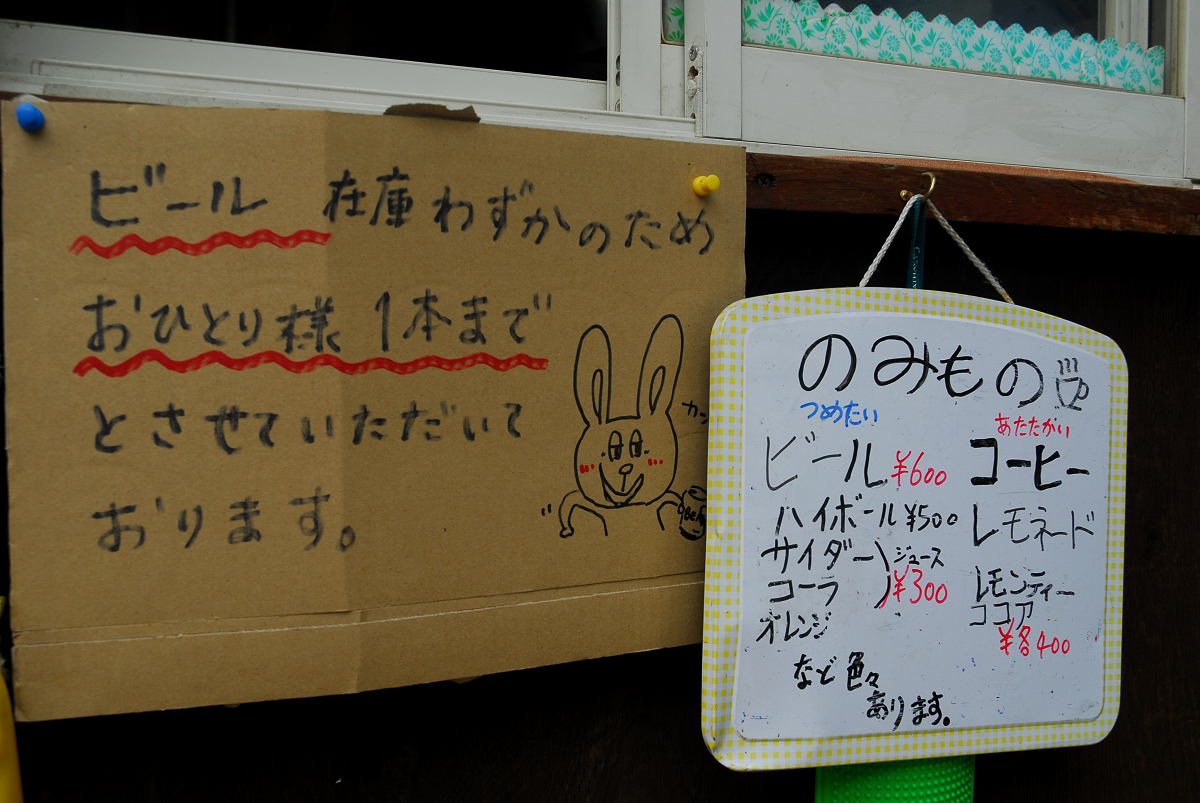 ビール 在庫わずかのため
おひとり様 1本まで
とさせていただいて
おります。
のみもの
つめたい
ビール ¥600
ハイボール ¥500
サイダー ジュース
コーラ ¥300
オレンジ
など色々
あります。
あたたがい
コーヒー
レモネード
レモンティー
ココア
¥各400